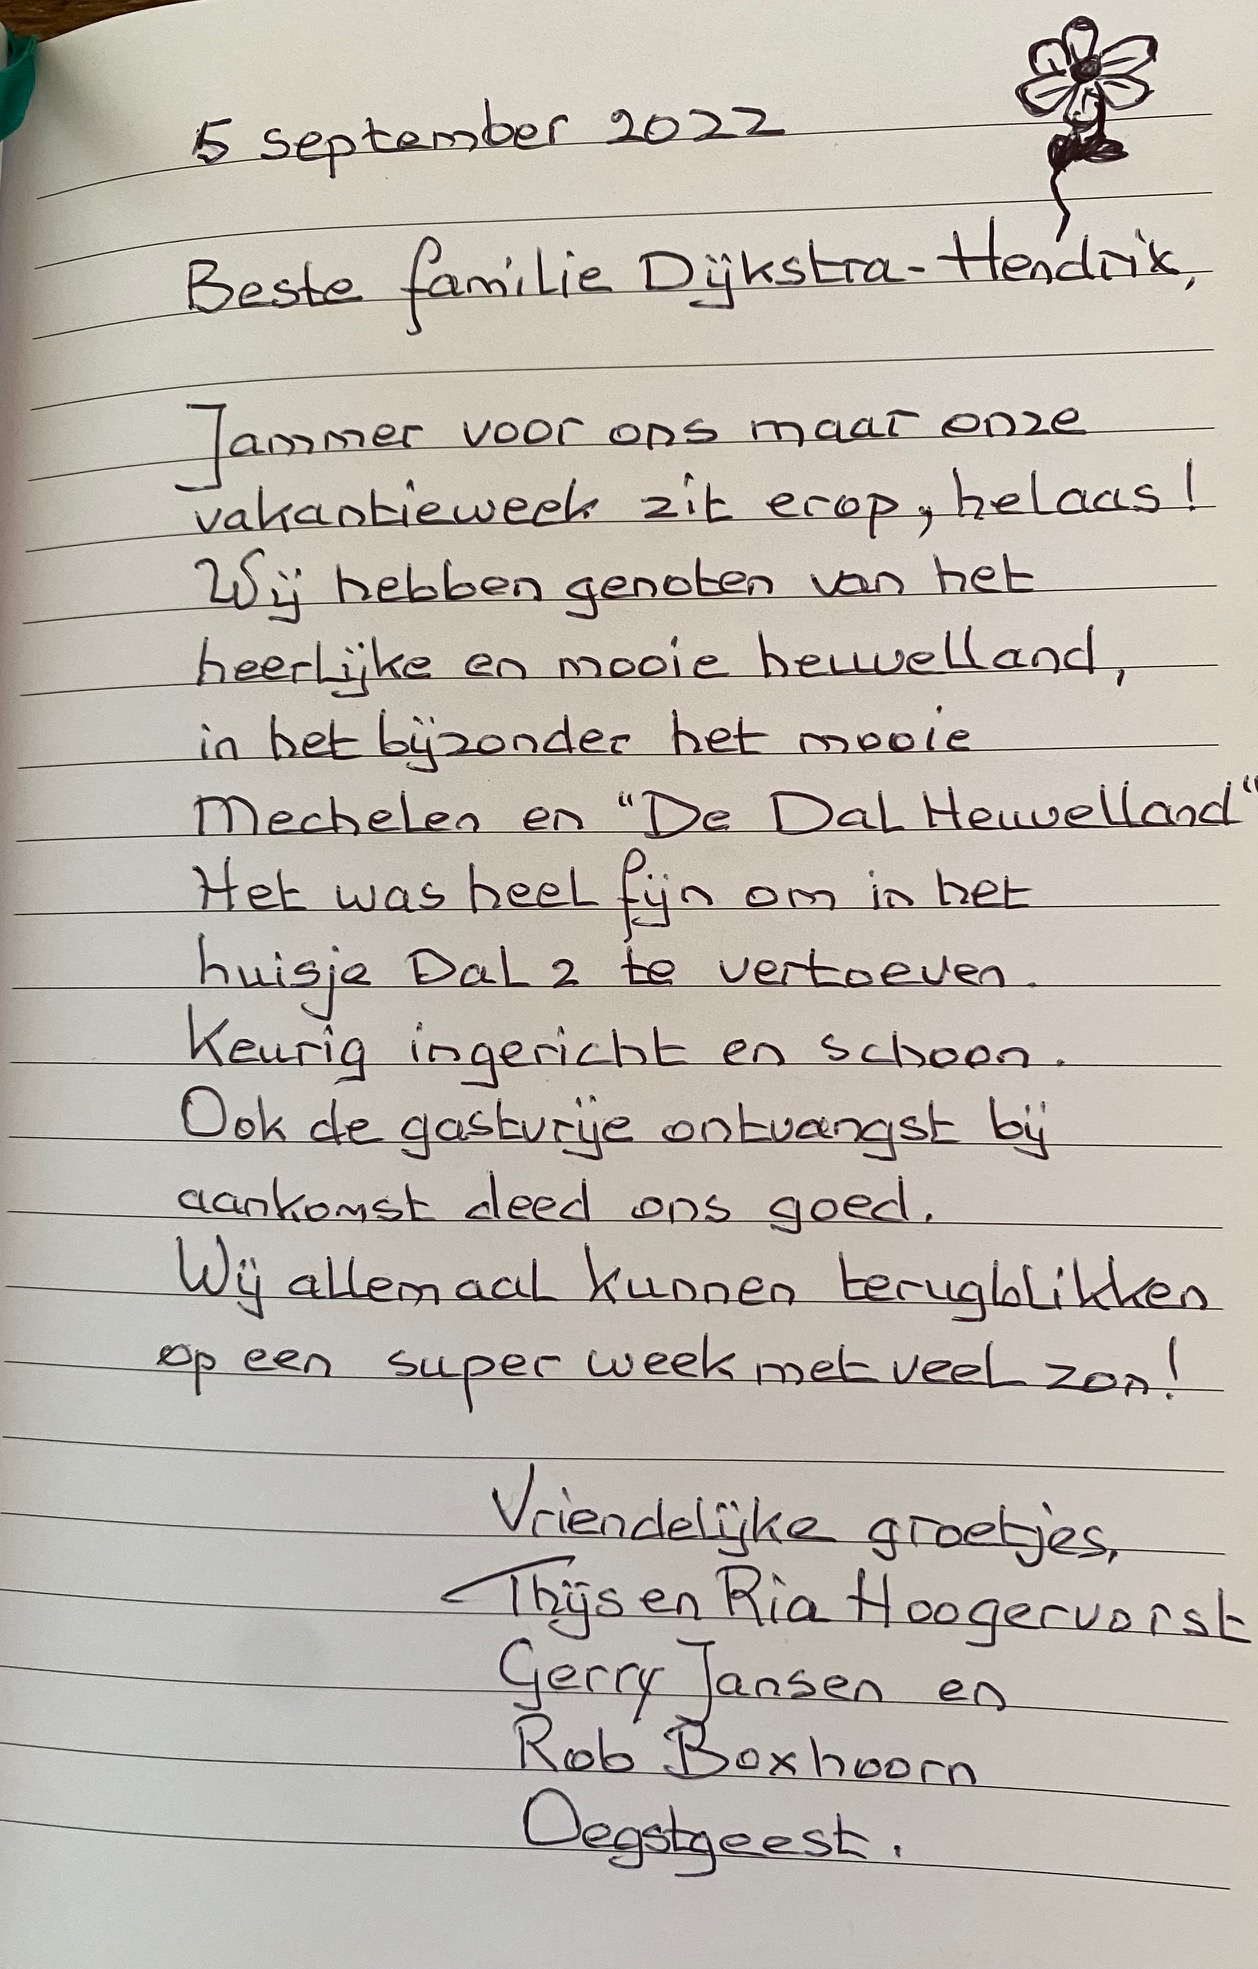 5 september 2022
Beste familie Dijkstra-Hendrix,
Jammer voor ons maar onze
vakantieweek zit erop, helaas!
Wij hebben genoten van het
heerlijke en mooie heuvelland,
in het bijzonder het mooie
Mechelen en "De Dal Heuvelland"
Het was heel fijn om in het
huisje Dal 2 te vertoeven.
Keurig ingericht en schoon.
Ook de gastvrije ontvangst bij
aankomst deed ons goed.
Wij allemaal kunnen terugblikken
op een super week met veel zon!
Vriendelijke groetjes,
Thijs en Ria Hoogervorst
Gerry Jansen en
Rob Boxhoorn
Oegstgeest.